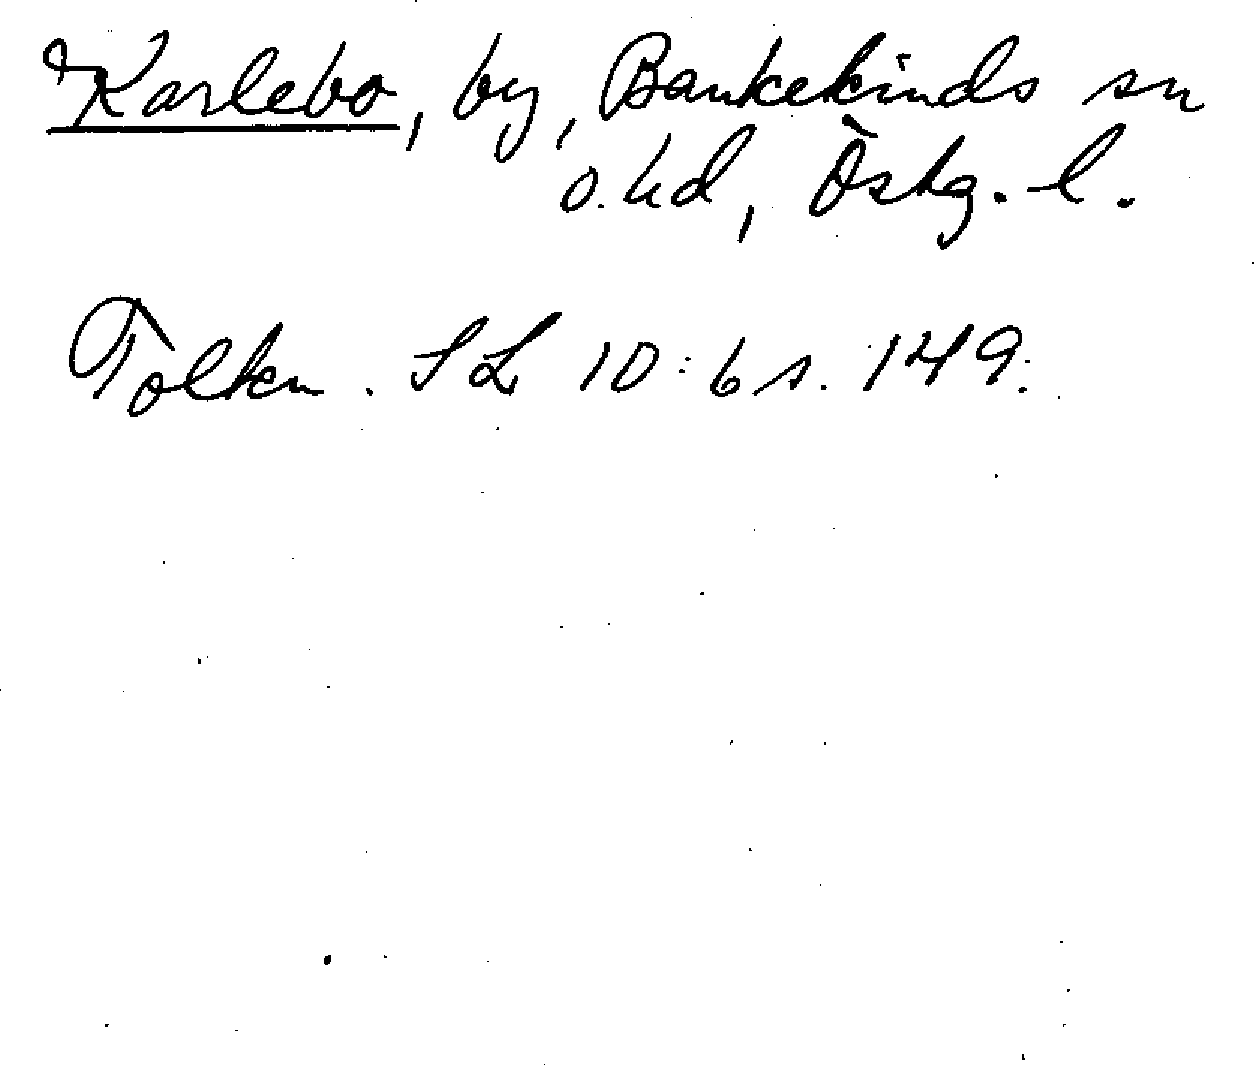 Karlebo, by, Bankekinds sn
o. hd, Östg. l.
Tolkn. SL 10:6 s. 149.